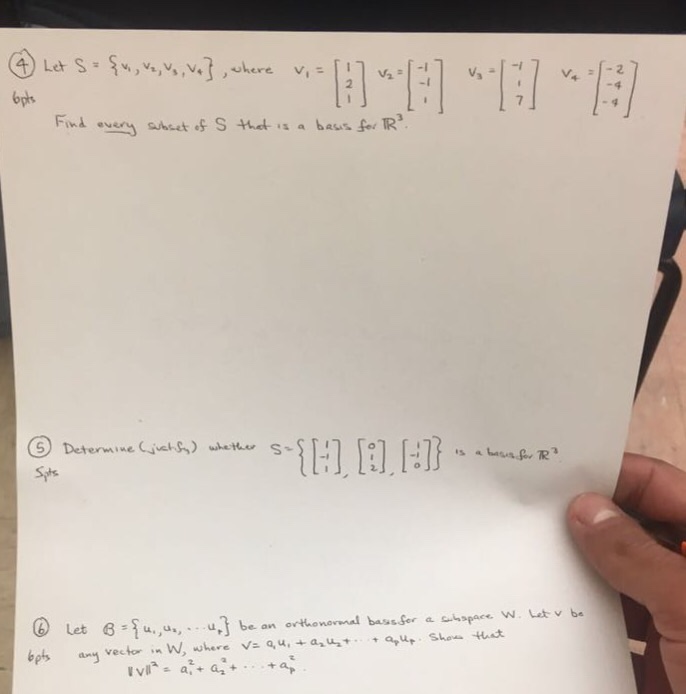 ④ Let S = {v₁, v₂, v₃, v₄}, where v₁ = [1 2 1] v₂ = [-1 -1 1] v₃ = [-1 1 7] v₄ = [-2 -4 -4]
6pts
Find every subset of S that is a basis for ℝ³.
⑤ Determine (justify) whether S = { [1 -1 1], [0 1 2], [1 -1 0] } is a basis for ℝ³
5pts
⑥ Let B = {u₁, u₂, ... uₚ} be an orthonormal basis for a subspace W. Let v be
6pts any vector in W, where v = a₁u₁ + a₂u₂ + ... + aₚuₚ. Show that
||v||² = a₁² + a₂² + ... + aₚ².